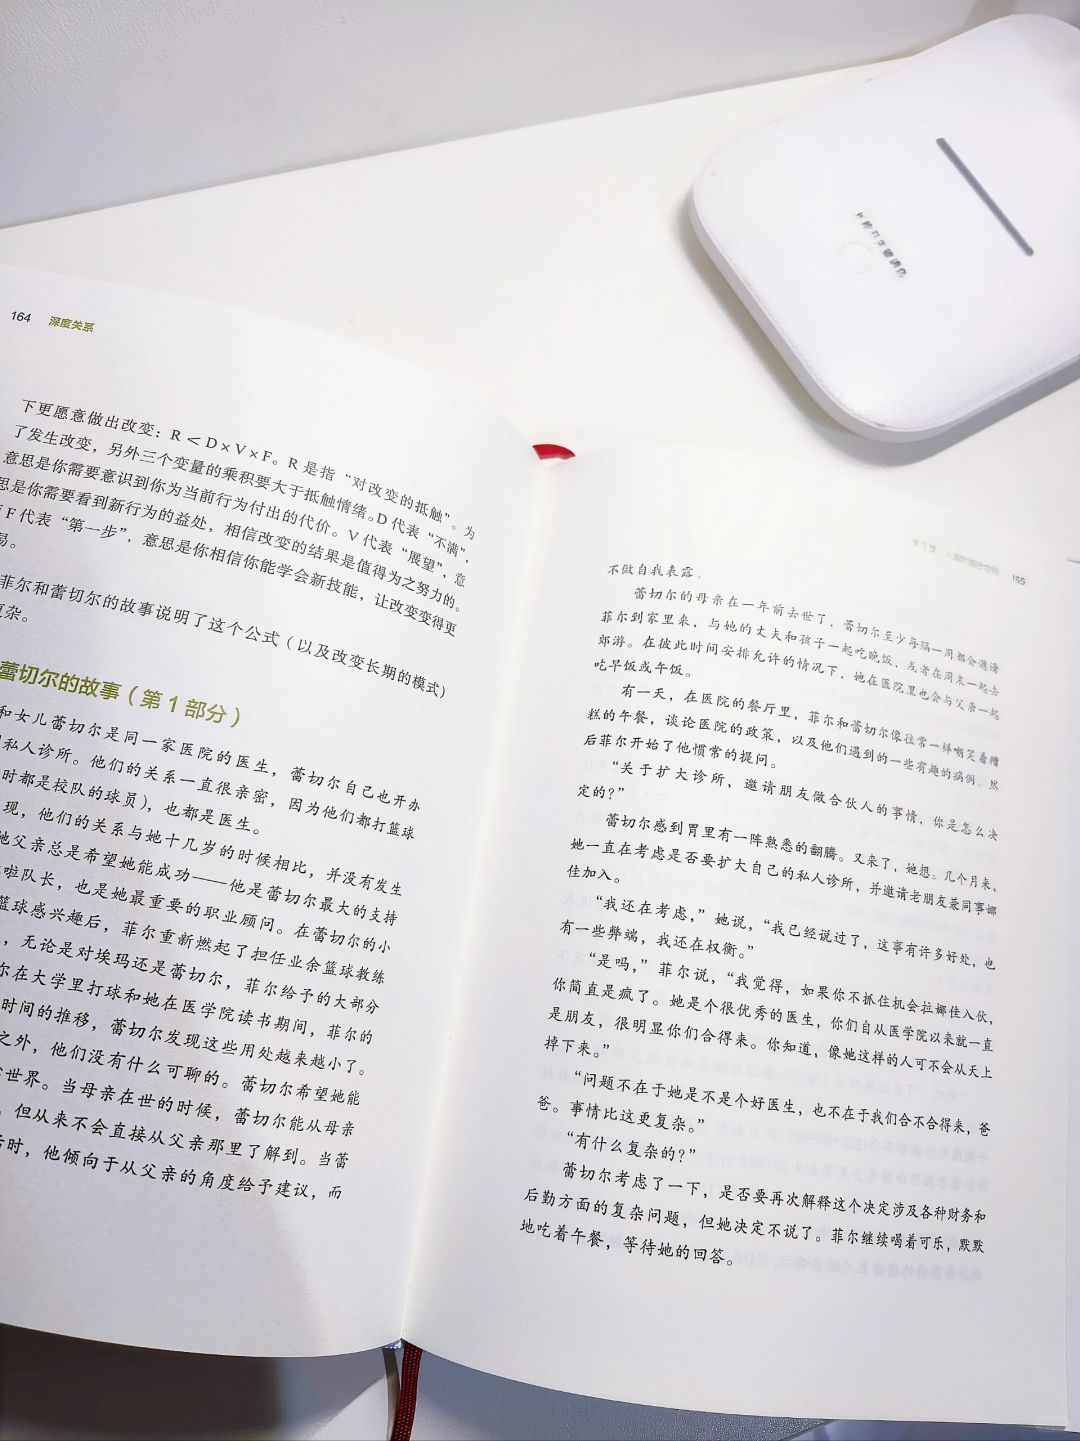 164 深度关系
下更愿意做出改变：R＜D×V×F。R 是指“对改变的抵触”。为
了发生改变，另外三个变量的乘积要大于抵触情绪。D 代表“不满”，
意思是你需要意识到你为当前行为付出的代价。V 代表“展望”，意
思是你需要看到新行为的益处，相信改变的结果是值得为之努力的。
F 代表“第一步”，意思是你相信你能学会新技能，让改变变得更
易。
菲尔和蕾切尔的故事说明了这个公式（以及改变长期的模式）
复杂。
蕾切尔的故事（第 1 部分）
和女儿蕾切尔是同一家医院的医生，蕾切尔自己也开办
私人诊所。他们的关系一直很亲密，因为他们都打篮球
时都是校队的球员），也都是医生。
现，他们的关系与她十几岁的时候相比，并没有发生
她父亲总是希望她能成功——他是蕾切尔最大的支持
啦队长，也是她最重要的职业顾问。在蕾切尔的小
篮球感兴趣后，菲尔重新燃起了担任业余篮球教练
，无论是对埃玛还是蕾切尔，菲尔给予的大部分
尔在大学里打球和她在医学院读书期间，菲尔的
时间的推移，蕾切尔发现这些用处越来越小了。
之外，他们没有什么可聊的。蕾切尔希望她能
世界。当母亲在世的时候，蕾切尔能从母亲
，但从来不会直接从父亲那里了解到。当蕾
时，他倾向于从父亲的角度给予建议，而
165
不做自我表露。
蕾切尔的母亲在一年前去世了，蕾切尔至少每隔一周都会邀请
菲尔到家里来，与她的丈夫和孩子一起吃晚饭，或者在周末一起去
郊游。在彼此时间安排允许的情况下，她在医院里也会与父亲一起
吃早饭或午饭。
有一天，在医院的餐厅里，菲尔和蕾切尔像往常一样嘲笑着糟
糕的午餐，谈论医院的政策，以及他们遇到的一些有趣的病例。然
后菲尔开始了他惯常的提问。
“关于扩大诊所，邀请朋友做合伙人的事情，你是怎么决
定的？”
蕾切尔感到胃里有一阵熟悉的翻腾。又来了，她想。几个月来，
她一直在考虑是否要扩大自己的私人诊所，并邀请老朋友兼同事娜
佳加入。
“我还在考虑，”她说，“我已经说过了，这事有许多好处，也
有一些弊端，我还在权衡。”
“是吗，”菲尔说，“我觉得，如果你不抓住机会拉娜佳入伙，
你简直是疯了。她是个很优秀的医生，你们自从医学院以来就一直
是朋友，很明显你们合得来。你知道，像她这样的人可不会从天上
掉下来。”
“问题不在于她是不是个好医生，也不在于我们合不合得来，爸
爸。事情比这更复杂。”
“有什么复杂的？”
蕾切尔考虑了一下，是否要再次解释这个决定涉及各种财务和
后勤方面的复杂问题，但她决定不说了。菲尔继续喝着可乐，默默
地吃着午餐，等待她的回答。